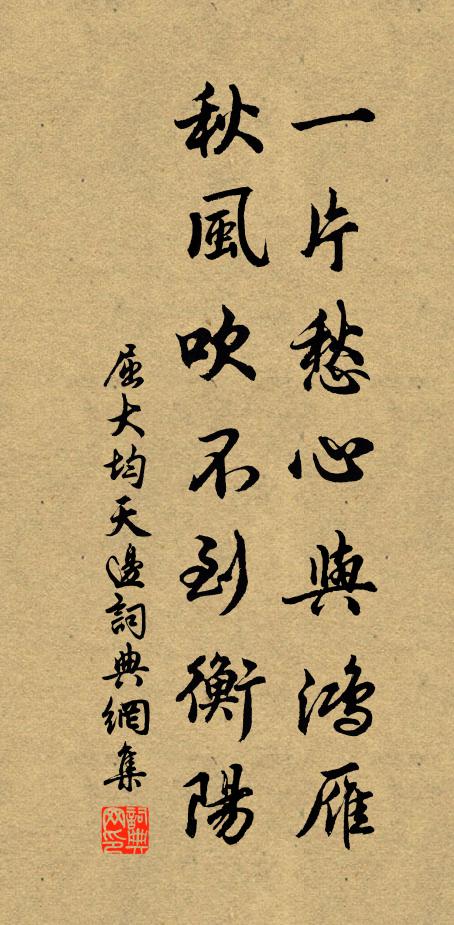 一片愁心與鴻雁
秋風吹不到衡陽
屈大均天邊詞典網集
詞典網印